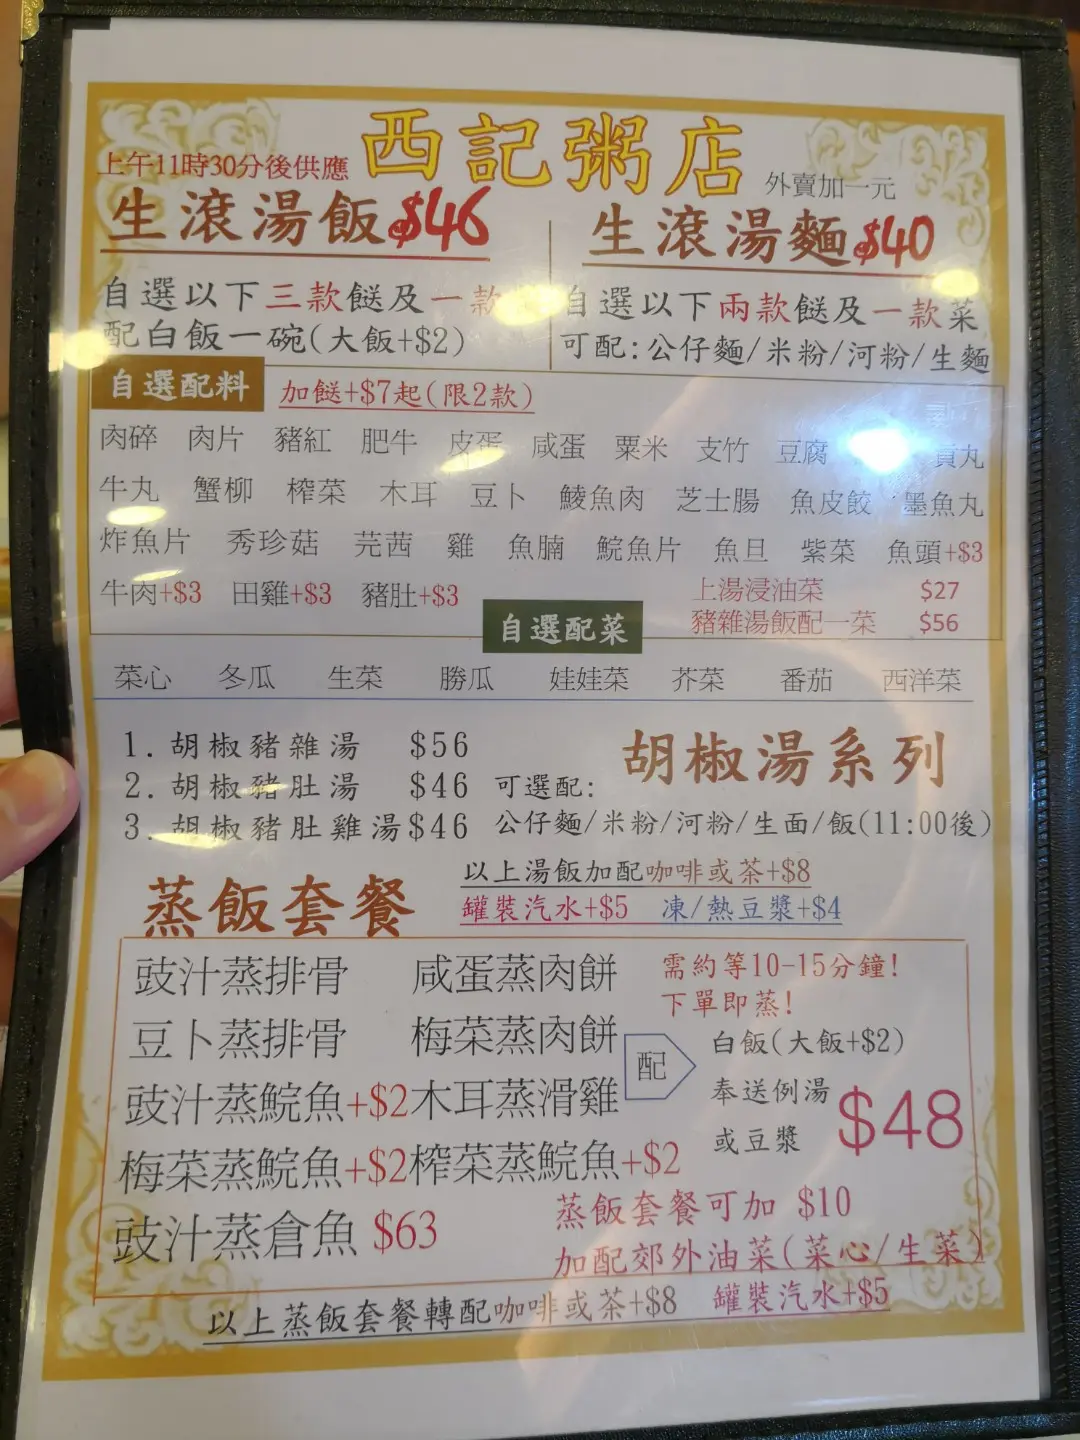 西記粥店
上午11時30分後供應
外賣加一元
生滾湯飯$46
生滾湯麵$40
自選以下三款餸及一款
配白飯一碗(大飯+$2)
自選以下兩款餸及一款菜
可配:公仔麵/米粉/河粉/生麵
自選配料 加餸+$7起(限2款)
肉碎 肉片 豬紅 肥牛 皮蛋 咸蛋 粟米 支竹 豆腐 貢丸
牛丸 蟹柳 榨菜 木耳 豆卜 鯪魚肉 芝士腸 魚皮餃 墨魚丸
炸魚片 秀珍菇 芫茜 雞 魚腩 鯇魚片 魚旦 紫菜 魚頭+$3
牛肉+$3 田雞+$3 豬肚+$3
上湯浸油菜 $27
豬雜湯飯配一菜 $56
自選配菜
菜心 冬瓜 生菜 勝瓜 娃娃菜 芥菜 番茄 西洋菜
胡椒湯系列
1. 胡椒豬雜湯 $56
2. 胡椒豬肚湯 $46
3. 胡椒豬肚雞湯$46
可選配:
公仔麵/米粉/河粉/生面/飯(11:00後)
以上湯飯加配咖啡或茶+$8
罐裝汽水+$5 凍/熱豆漿+$4
蒸飯套餐
豉汁蒸排骨 咸蛋蒸肉餅
豆卜蒸排骨 梅菜蒸肉餅
豉汁蒸鯇魚+$2 木耳蒸滑雞
梅菜蒸鯇魚+$2 榨菜蒸鯇魚+$2
豉汁蒸倉魚 $63
需約等10-15分鐘!
下單即蒸!
配
白飯(大飯+$2)
奉送例湯
或豆漿
$48
蒸飯套餐可加 $10
加配郊外油菜(菜心/生菜)
以上蒸飯套餐轉配咖啡或茶+$8 罐裝汽水+$5